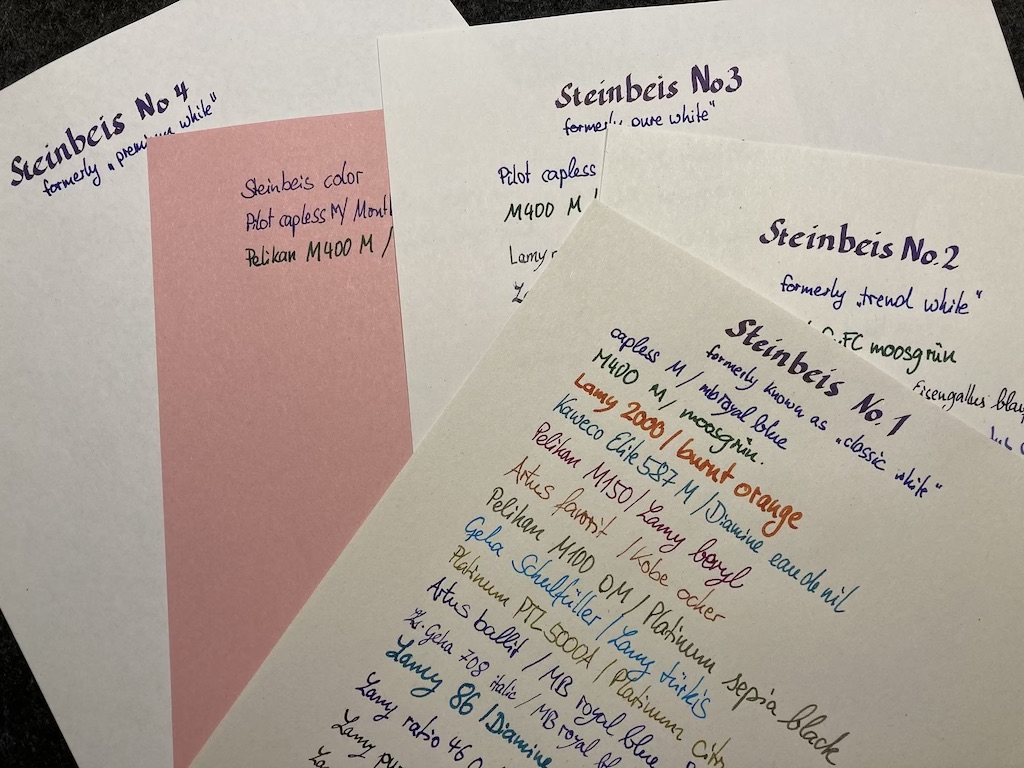 Steinbeis No 4
formerly „premium white"
Steinbeis color
Pilot capless M/ Montb
Pelikan M400 M /
Steinbeis No3
formerly pure white"
Pilot capless
M400 M /
Lamy
Steinbeis No.2
formerly „trend white"
FC moosgrün
Eisengallus blau
Steinbeis No.1
formerly known as „classic white"
capless M / mb royal blue
M400 M / moosgrün.
Lamy 2000 / burnt orange
Kaweco Elite 587 M / Diamine eau de nil
Pelikan M150 / Lamy beryl
Artus favorit / Kobe ocher
Pelikan M100 OM / Platinum sepia black
Geha Schulfüller / Lamy türkis
Platinum PTL 5000A / Platinum citr
Artus ballit / MB royal blue
Geha 708 italic / MB royal bl
Lamy 86 / Diamine
Lamy ratio 46
Lamy pur